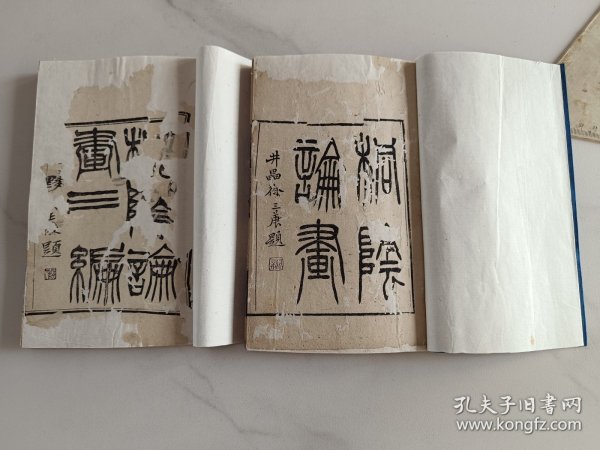 桐陰
論畫
井罍徐三庚題
桐陰論
畫三編
題
孔夫子旧书网
www.kongfz.com